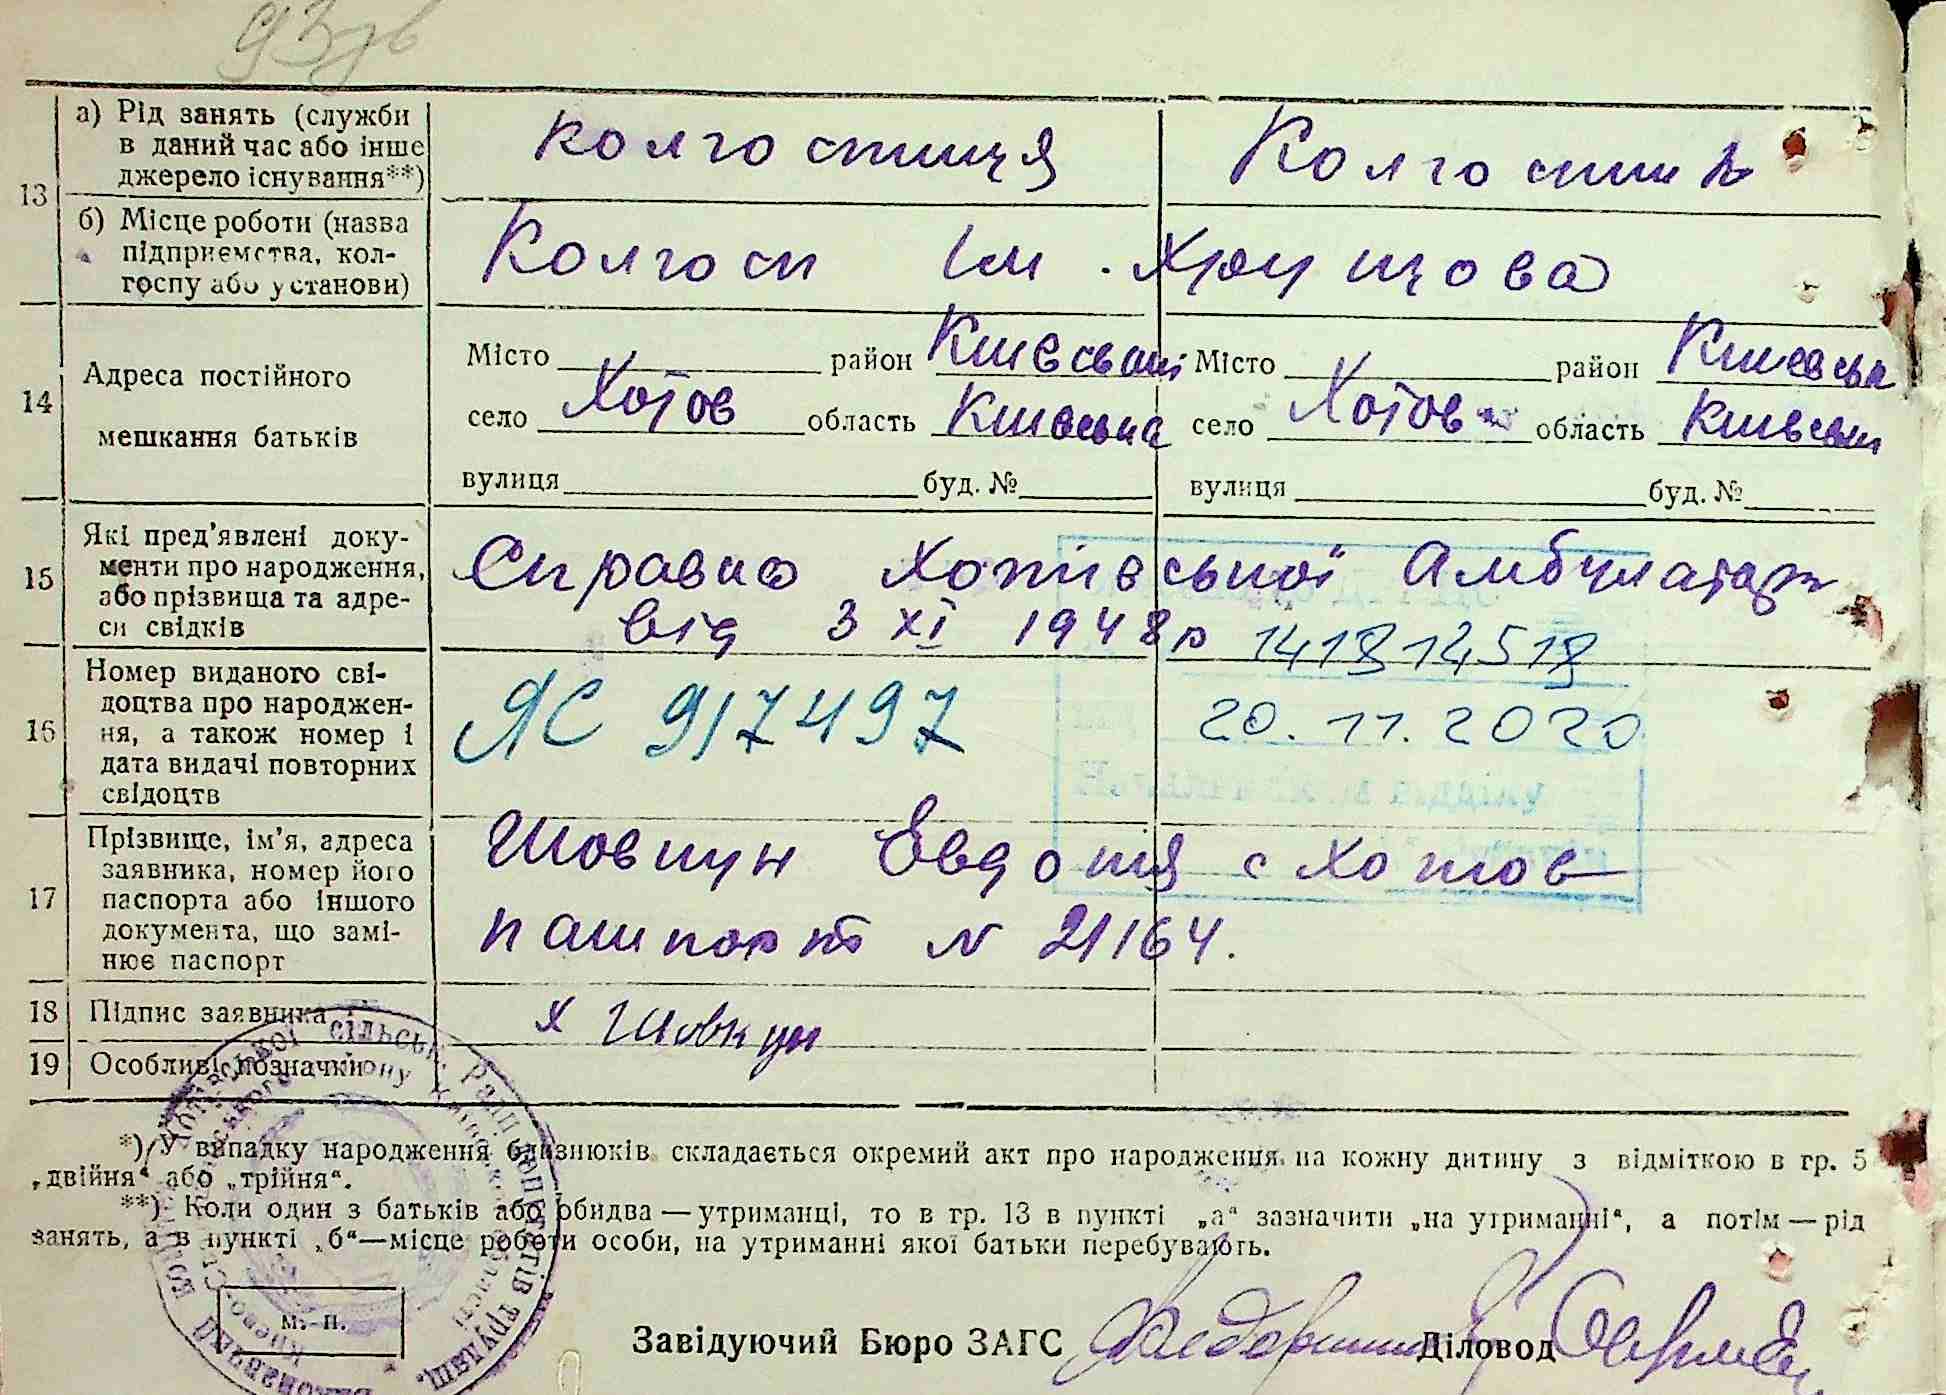 13 а) Рід занять (служби в даний час або інше джерело існування**)
колгоспниця
Колгоспник
б) Місце роботи (назва підприємства, колгоспу або установи)
Колгосп Ім. Хрущова
14 Адреса постійного мешкання батьків
Місто район Києвський Місто район Києвськ
село Хотов область Києвська село Хотов область Києвськ
вулиця буд. № вулиця буд. №
15 Які пред'явлені документи про народження, або прізвища та адреси свідків
Справка Хотівської Амбулатор
від 3 XI 1948 р 141812518
16 Номер виданого свідоцтва про народження, а також номер і дата видачі повторних свідоцтв
ЯС 917497 20.11.2020
17 Прізвище, ім'я, адреса заявника, номер його паспорта або іншого документа, що замінює паспорт
Шовкун Евдотія с Хотов
пашпорт N 21164.
18 Підпис заявника
х Шовкун
19 Особливі позначки
*) У випадку народження близнюків складається окремий акт про народження на кожну дитину з відміткою в гр. 5
„двійня“ або „трійня“.
**) Коли один з батьків або обидва — утриманці, то в гр. 13 в пункті „а“ зазначити „на утриманні“, а потім — рід
занять, а в пункті „б“—місце роботи особи, на утриманні якої батьки перебувають.
м. п.
Завідуючий Бюро ЗАГС Діловод